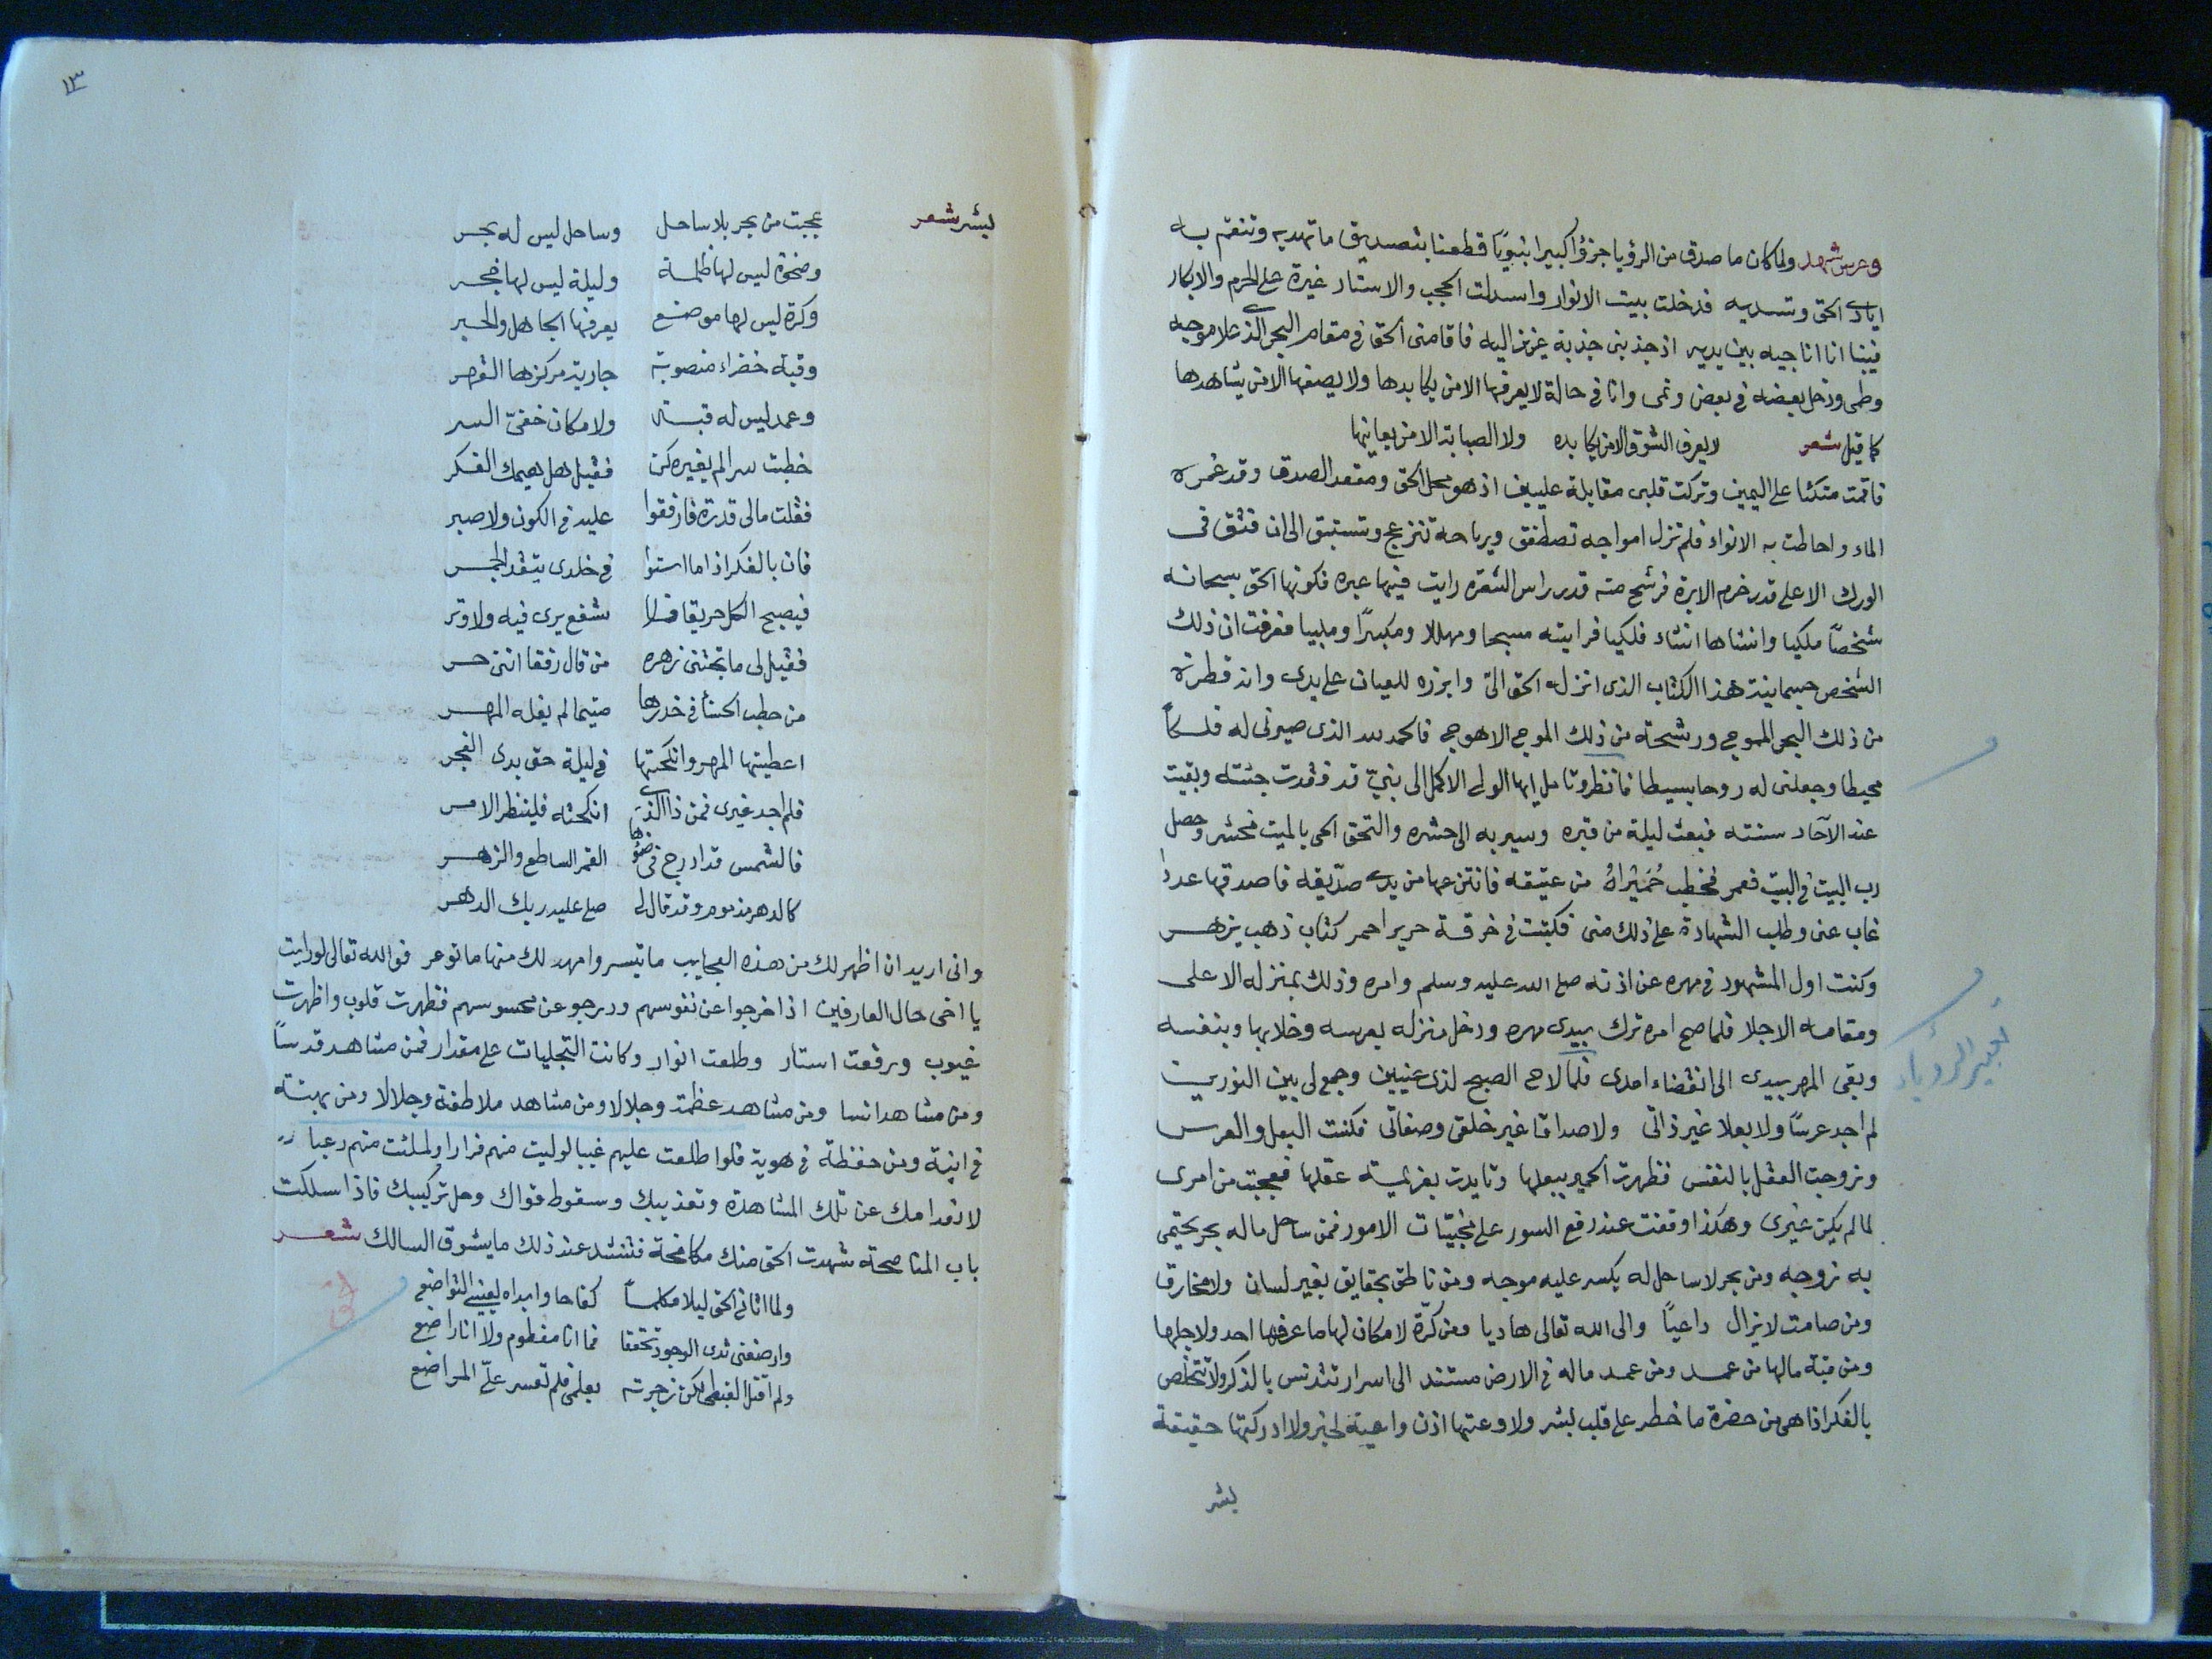 وعرس شهد ولما كان ما صدق من الرؤيا جزؤا كبيرا بنبويا قطعنا بتصديق ما تهديه وتنقم به
اياى الحق وتسديه فدخلت بيت الانوار واسدلت الحجب والاستار غيرة على الحرم والابكار
فبينا انا اناجيه بين يديه اذ جذبنى جذبة عزيز اليه فاقامنى الحق فى مقام البحر الذى علا موجه
وطمى ودخل بعضه فى بعض ونمى وانا فى حالة لا يعرفها الا من يكابدها ولا يصفها الا من يشاهدها
كما قيل شعر لا يعرف الشوق الا من يكابده ولا الصبابة الا من يعانيها
فاقمت متكئا على اليمين وتركت قلبى مقابلة عليين اذ هو محل الحق ومقعد الصدق وقد غمره
الماء واحاطت به الانواء فلم تزل امواجه تصطفق ورياحه تنزعج وتستبق الى ان فتق فى
الورك الاعلى قدر خرم الابرة فرشح منه قدر راس الشعرة رايت فيها عبره فكونها الحق سبحانه
شخصاً ملكيا وانشاها انشاء فلكيا فرايته مسبحا ومهللا ومكبراً وملبيا فعرفت ان ذلك
الشخص جسمانية هذا الكتاب الذى انزله الحق الىّ وابرزه للعيان على يدى وانه قطرة
من ذلك البحر المموج ورشحة من ذلك الموج الاهوج فالحمد لله الذى صيرنى له فلكاً
محيطا وجعلنى له روحا بسيطا فانظر وتامل ايها الولى الاكمل الى بنىّ قد فقدت جثته وبقيت
عند الآحاد سنته فبعث ليلة من قبره وسير به الى حشره والتحق الحى بالميت فحشر وحصل
رب البيت فى البيت فعمر فخطب حُمَيْرَاءُ من عتيقه فانتزعها من يدى صدّيقه فاصدقها عددا
غاب عنى وطلب الشهادة على ذلك منى فكتبت فى خرقة حرير احمر كتاب ذهب يزهر
وكنت اول المشهود فى مهره عن اذنه صلى الله عليه وسلم وامره وذلك بمنزله الاعلى
ومقامه الاجلا فلما صح امره ترك بيدى مهره ودخل منزله بعرسه وخلا بها وبنفسه
وبقى المهر بيدى الى انقضاء امدى فلما لاح الصبح لذى عينين وجمع لى بين النورين
لم اجد عرسًا ولا بعلا غير ذاتى ولا صداقا غير خلقى وصفاتى فكنت البعل والعرس
وزوجت العقل بالنفس فظهرت الحمير ببعلها وتايدت بغريمية عقلها فعجبت من امرى
لما لم يكن غيرى وهكذا وقفت عند رفع السور على مخبيّات الامور فمن ساحل ماله بحر يحتمى
به نزوجه ومن بحر لا ساحل له يكسر عليه موجه ومن ناطق بحقايق بغير لسان ولا مخارق
ومن صامت لا يزال داعيًا والى الله تعالى هاديا ومن كرّة لا مكان لها ما عرفها احد ولا جهلها
ومن قبة مالها من عمد ومن عمد ماله فى الارض مستند الى اسرار تتدنس بالذكر ولا تتخلص
بالفكر اذا هى من حضرة ما خطر على قلب بشر ولا وعتها اذن واعية لخبر ولا ادركتها حقيقة
بشر
تعبير الرؤيا
١٣
لبشر شعر عجبت من بحر بلا ساحل وساحل ليس له بحر
وضحوة ليس لها ظلمة وليلة ليس لها فجر
وكرة ليس لها موضع يعرفها الجاهل والحبر
وقبة خضراء منصوبة جارية مركزها القهر
وعمد ليس له قبة ولا مكان خفىّ السر
خطبت سرا لم يغيره كن فقيل هل هيمك الفكر
فقلت مالى قدرة فارفقوا عليه فى الكون ولا صبر
فان بالفكر اذا ما استوا فى خلدى يتقد الجمر
فيصبح الكل حريقا فلا شفع يرى فيه ولا وتر
فقيل لى ما تجتنى زهره من قال رفقا اننى حر
من خطب الحسنا فى خدرها متيما لم يغله المهر
اعطيتها المهر وانكحتها فى ليلة حتى بدى الفجر
فلم اجد غيرى فمن ذا الذى انكحته فلينظر الامر
فالشمس قد ادرج فى ضوئها القمر الساطع والزهر
كالدهر مذموم وقد قال لى صلى عليه ربك الدهر
وانى اريد ان اظهر لك من هذه العجايب ما تيسر وامهد لك منها ما توعر فوالله تعالى لو رايت
يا اخى حال العارفين اذا خرجوا عن نفوسهم ودرجو عن محسوسهم فتطهرت قلوب واظهرت
غيوب ورفعت استار وطلعت انوار وكانت التجليات على مقدار فمن مشاهد قدساً
ومن مشاهد انسا ومن مشاهد عظمة وجلالا ومن مشاهد ملاطفة وجلالا ومن بهتة
فى اينية ومن حفظة فى هوية فلو اطلعت عليهم غيبا لوليت منهم فرارا ولملئت منهم رعبا
لانعدامك عن تلك المشاهدة وتعذيبك وسقوط قواك وحل تركيبك فاذا سلكت
باب المناصحة شهدت الحق منك مكافحة فتنشد عند ذلك ما يشوق السالك شعر
ولما اتانى الحق ليلا مكلماً كفاحا وابداه لعينى التواضع
وارضعنى ثدى الوجود تحققا فما انا مفطوم ولا انا راضع
ولم اقتل القبطى لكن زجرته بعلمى فلم تعسر علىّ المراضع